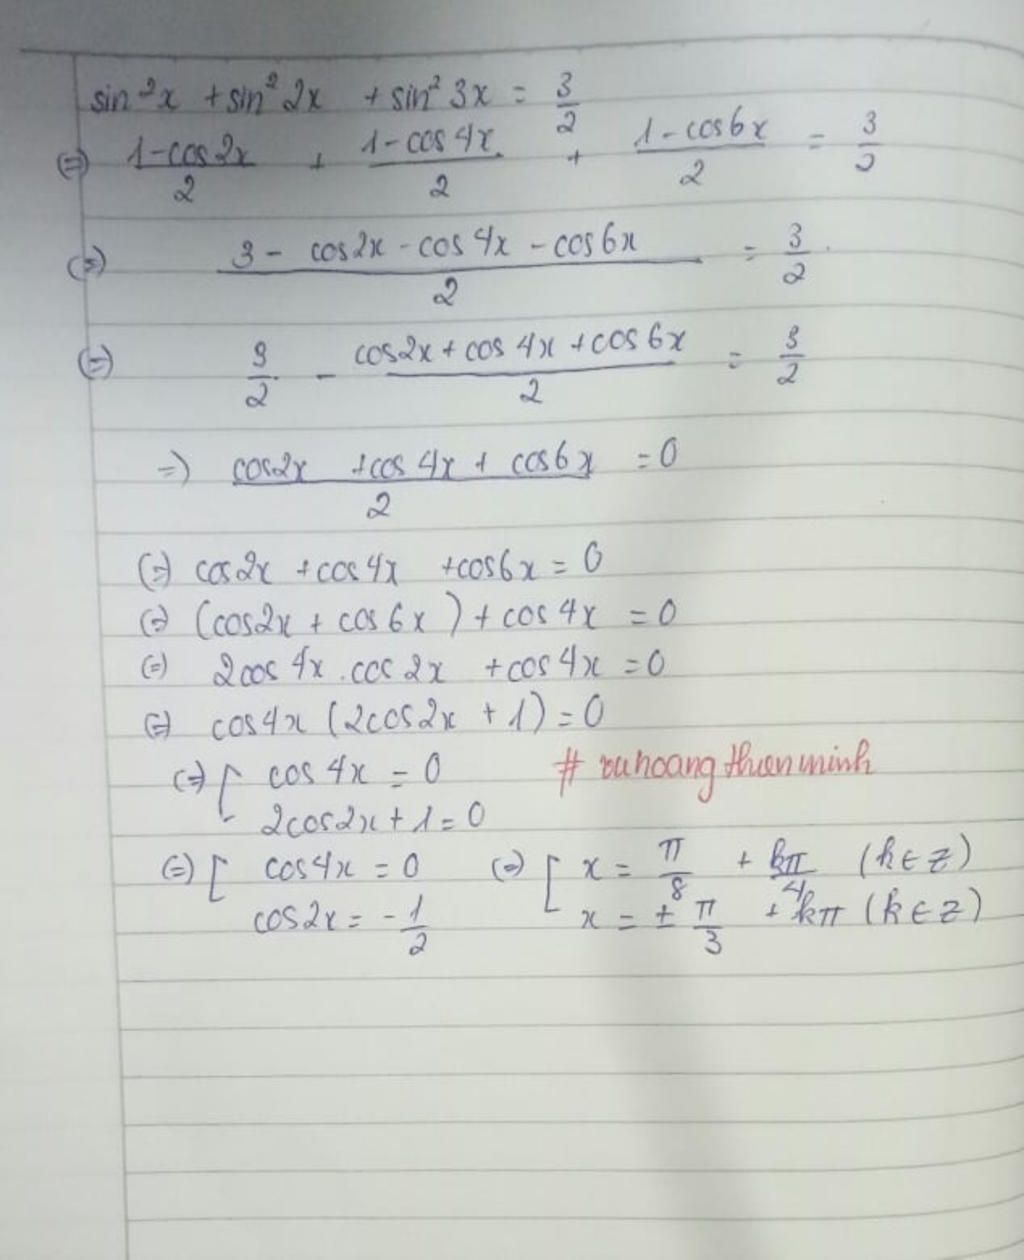 sin²x + sin²2x + sin²3x = 3/2
(=) (1-cos2x)/2 + (1-cos4x)/2 + (1-cos6x)/2 = 3/2
(=) (3 - cos2x - cos4x - cos6x)/2 = 3/2
(=) 3/2 - (cos2x + cos4x + cos6x)/2 = 3/2
=) (cos2x + cos4x + cos6x)/2 = 0
(=) cos2x + cos4x + cos6x = 0
(=) (cos2x + cos6x) + cos4x = 0
(=) 2cos4x.cos2x + cos4x = 0
(=) cos4x (2cos2x + 1) = 0
(=) [ cos4x = 0
2cos2x + 1 = 0
# vuhoangthienminh
(=) [ cos4x = 0 (=) [ x = π/8 + kπ/4 (k∈z)
cos2x = -1/2 x = ± π/3 + kπ (k∈z)